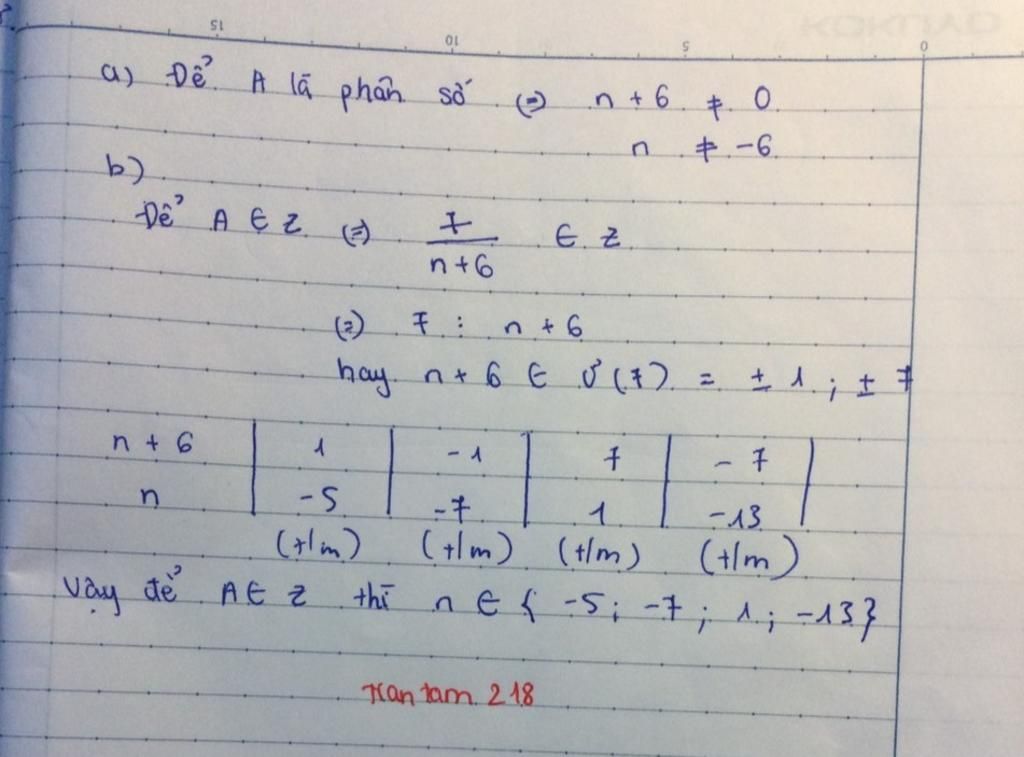 15 10 5 0
a) Để A là phân số (=) n + 6 ≠ 0
n ≠ -6
b)
Để A ∈ Z (=) 7/(n+6) ∈ Z
(=) 7 ⋮ n + 6
hay n + 6 ∈ Ư(7) = ± 1 ; ± 7
n + 6 | 1 | -1 | 7 | -7 |
n | -5 | -7 | 1 | -13 |
(t/m) (t/m) (t/m) (t/m)
Vậy để A ∈ Z thì n ∈ { -5 ; -7 ; 1 ; -13 }